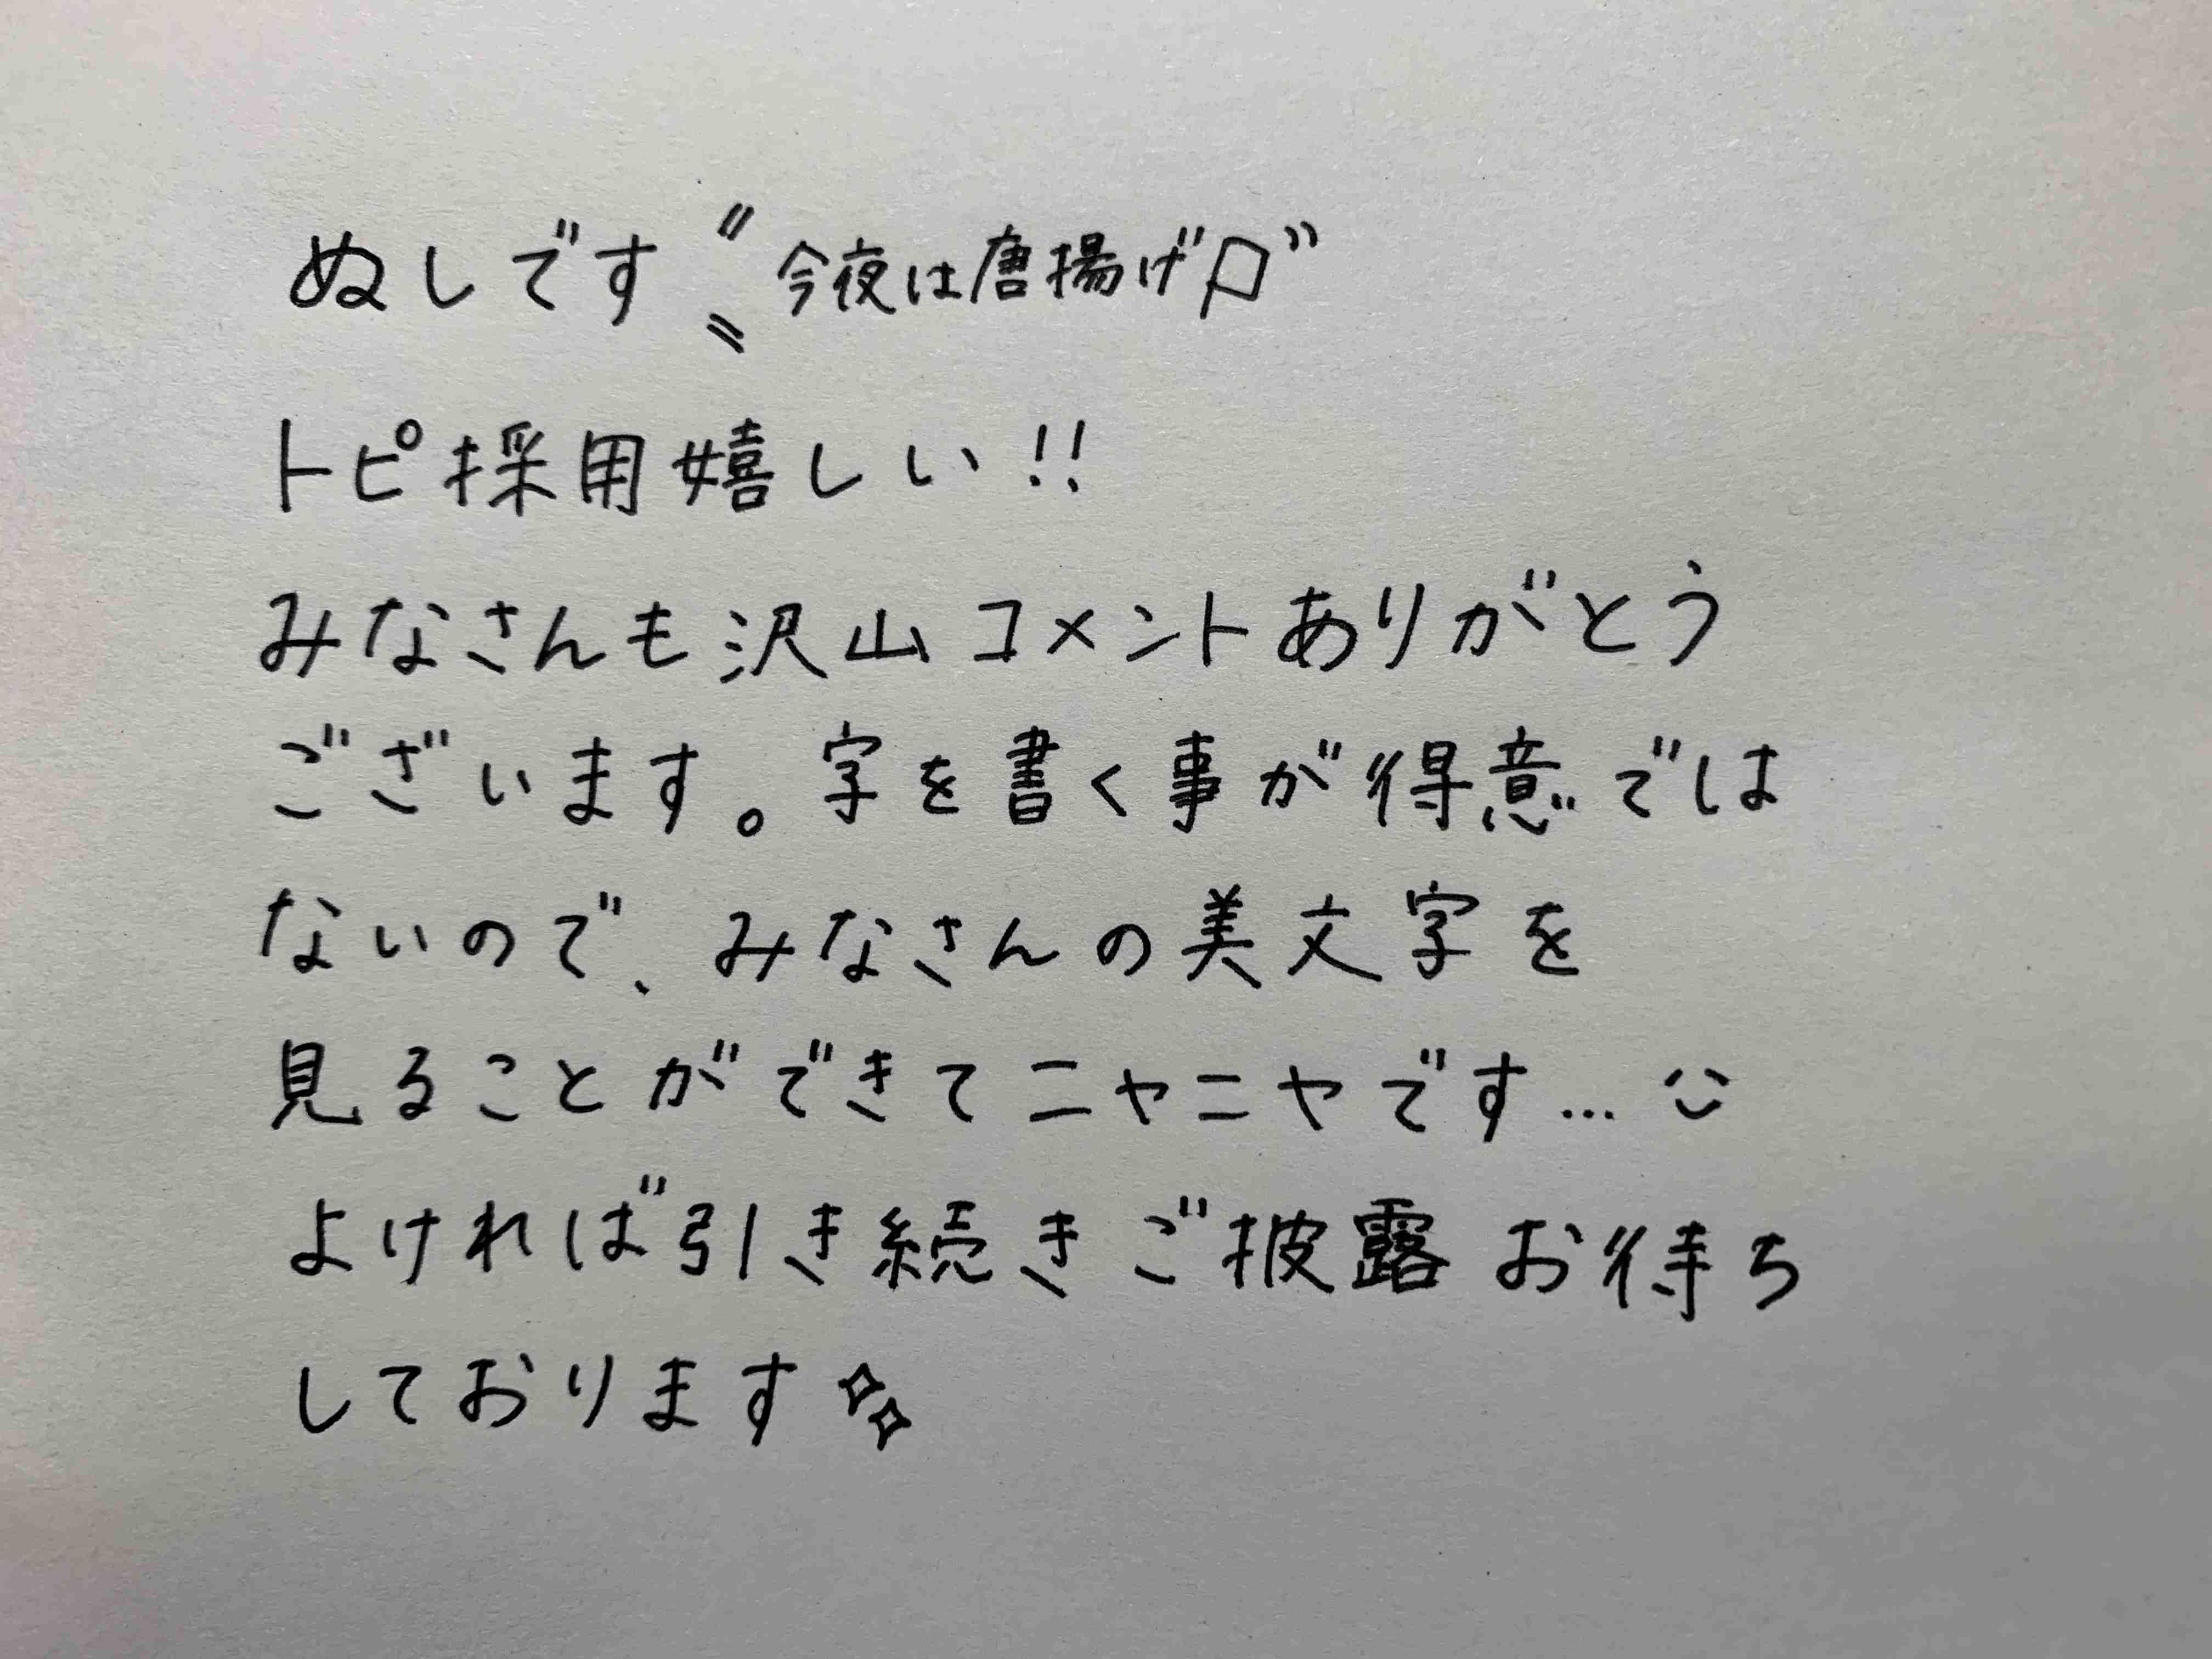 ぬしです〃 "今夜は唐揚げ"
トピ採用嬉しい!!
みなさんも沢山コメントありがとう
ございます。字を書く事が得意では
ないので、みなさんの美文字を
見ることができてニヤニヤです…
よければ引き続きご披露お待ち
しております